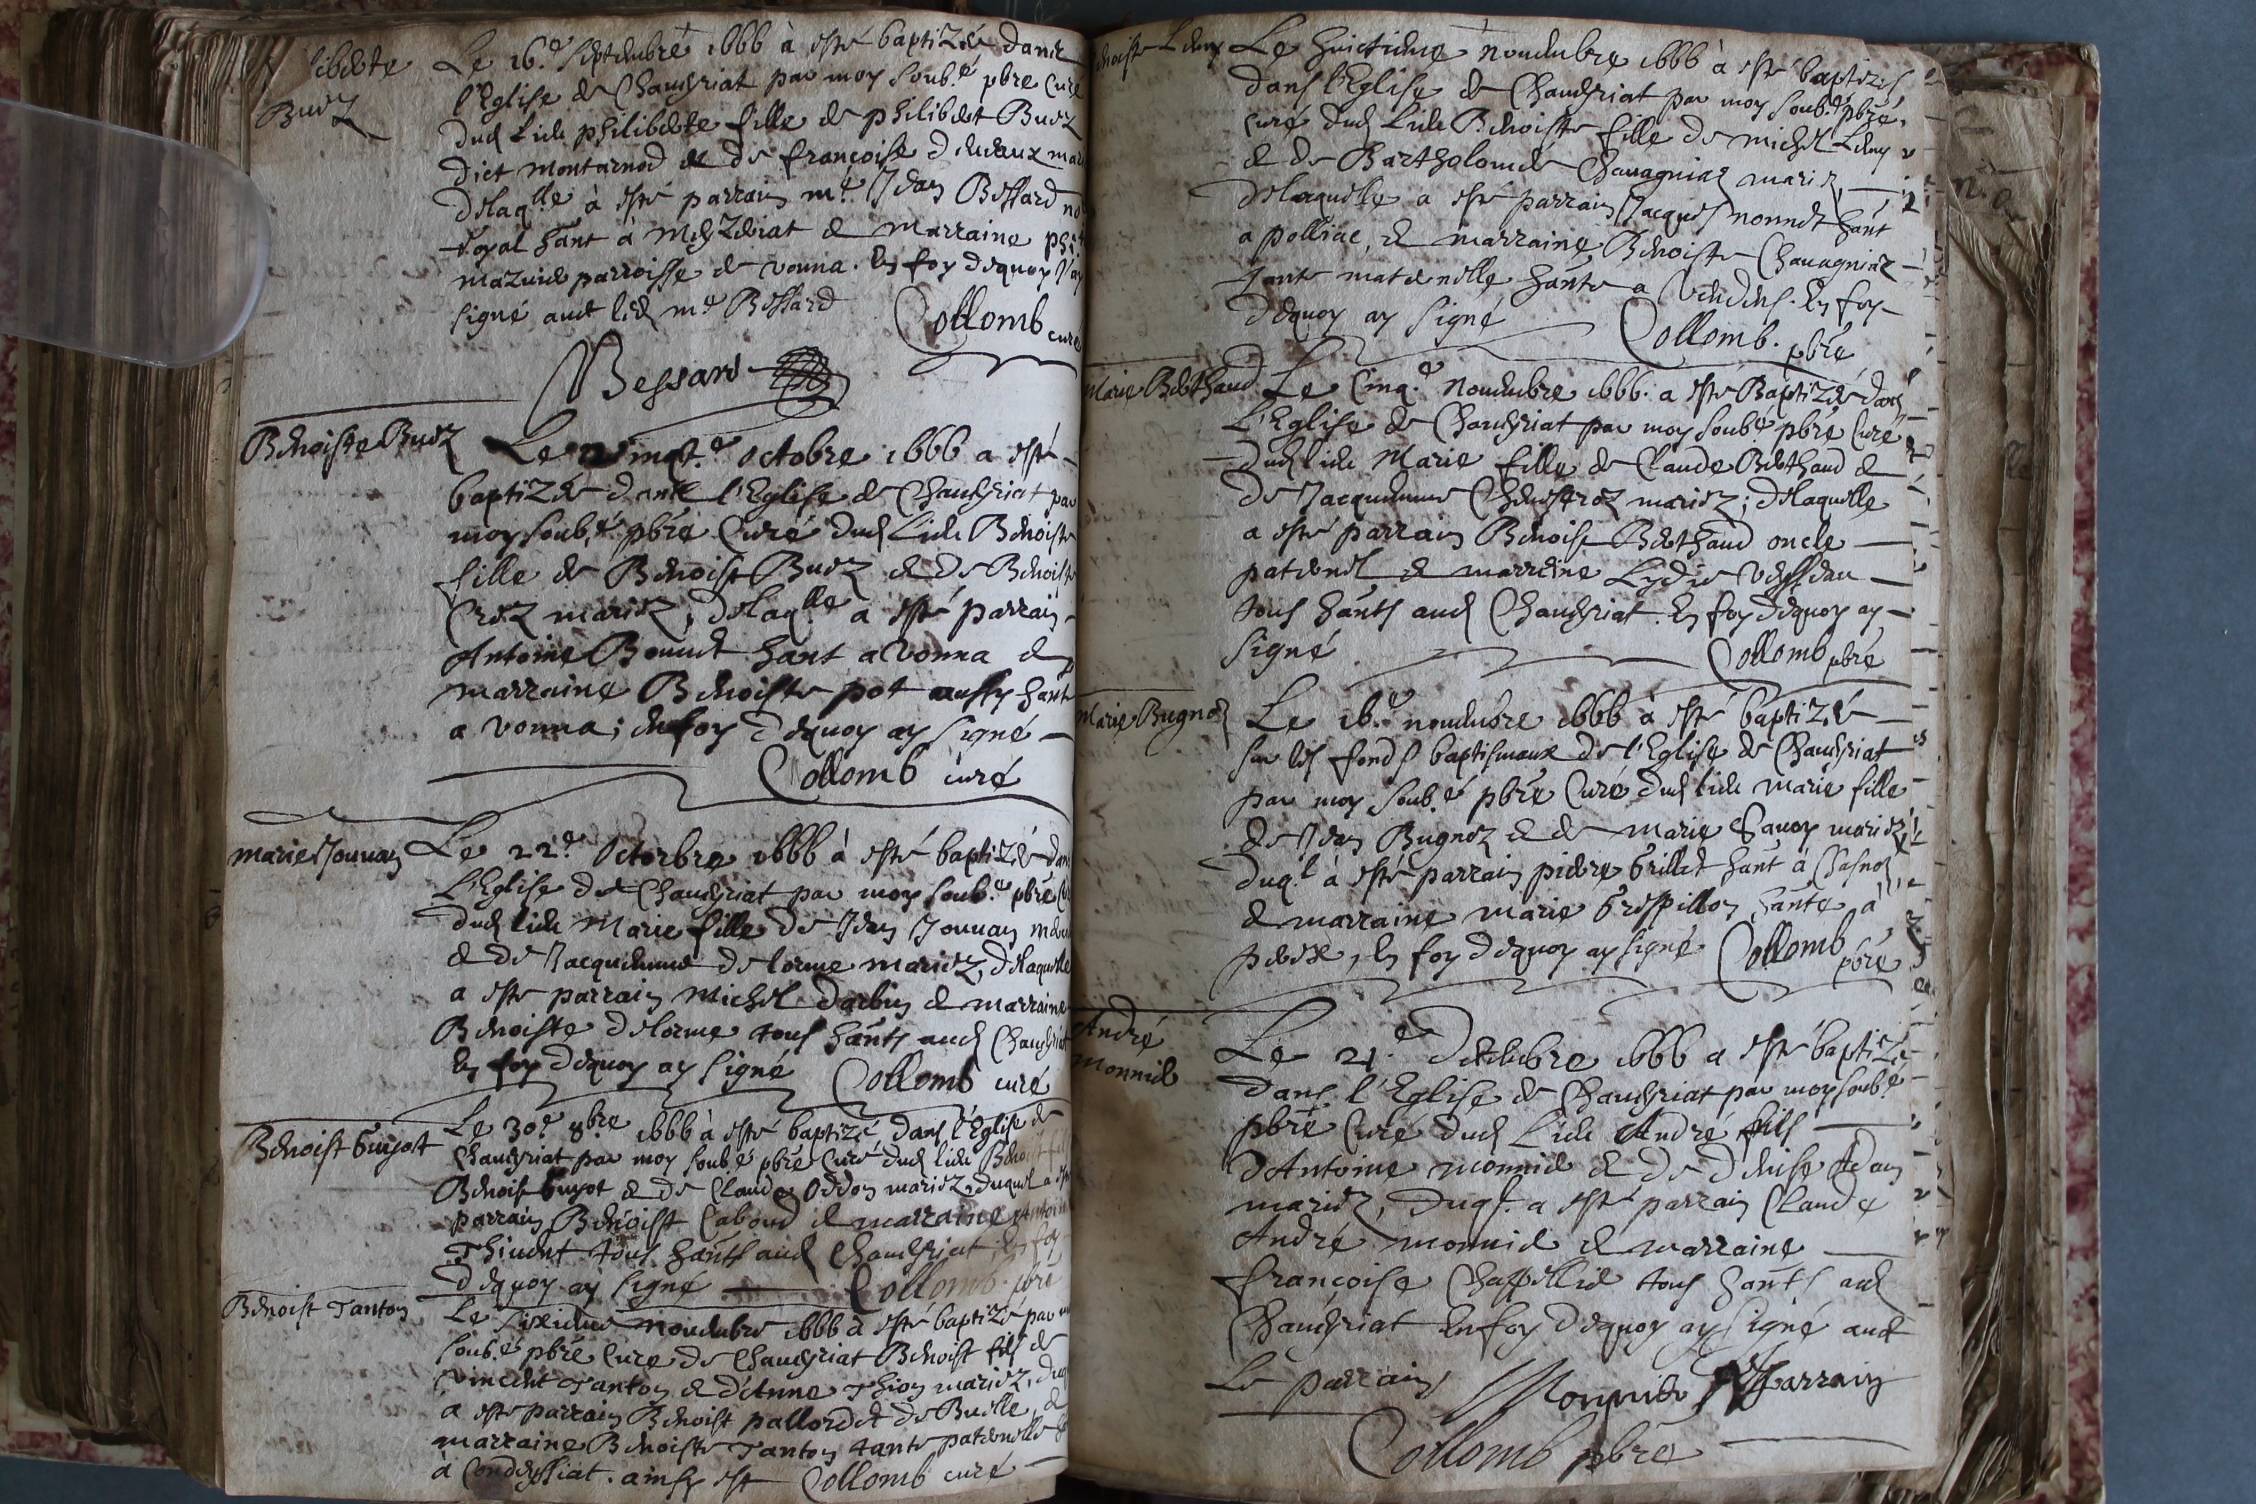 Buez
Le 16.e septembre 1666 à esté baptizée dans
l'Eglise de Chaveyriat par moy soub.é pbre Curé
dud lieu philiberte fille de philibert Buez
dict montarnod et de françoise
delaq.lle à esté parrain m.e Jean Bessard
royal hant à Mezeriat et Marraine
parroisse de vonna. En foy dequoy j'ay
signé avec led m.e Bessard
Collomb curé
Bessard
Benoiste Buez
Le vingt.e octobre 1666 a esté
baptizée dans l'Eglise de Chaveyriat par
moy soub.é pbre Curé dud lieu Benoiste
fille de Benoist Buez et de Benoiste
mariez, delaq.lle a esté parrain
Antoine hant a vonna et
marraine Benoiste pot aussy hante
a vonna; en foy dequoy ay signé
Collomb curé
marie Jouvan
Le 22.e Octobre 1666 à esté baptizée dans
L'Eglise de Chaveyriat par moy soub.é pbre
dud lieu Marie fille de Jean Jouvan
et de Jacquemme delorme mariez, delaquelle
a esté parrain Michel darbin et marraine
Benoiste delorme tous hants aud Chaveyriat
En foy dequoy ay signé
Collomb curé
Benoist Guyot
Le 30.e 8bre 1666 à esté baptizé dans l'Eglise de
Chaveyriat par moy soub.é pbre Curé dud lieu Benoist
Benoist Guyot et de Claude Oddon mariez, duquel a esté
parrain Benoist Cabond et marraine
Thivent tous hants aud Chaveyriat, En foy
dequoy ay signé Collomb pbre
Benoist Tanton
Le sixieme novembre 1666 à esté baptizé par
soub.é pbre Curé de Chaveyriat Benoist fils de
vincent Tanton et d'Anne Thion mariez,
a esté parrain Benoist pallordet de Buelle, et
marraine Benoiste Tanton tante paternelle
à Condeyssiat. ainsy est Collomb curé
Le huictieme novembre 1666 à esté baptizée
dans l'Eglise de Chaveyriat par moy soub.é pbre
curé dud lieu Benoiste fille de michel
et de Bartholomée Chavagniaz mariez
delaquelle a esté parrain Jacques nonnet hant
a polliac, et marraine Benoiste Chavagniaz
tante maternelle hante a Vendens. En foy
dequoy ay signé
Collomb. pbre
Marie Bethaud
Le Cinq.e novembre 1666. a esté Baptizée dans
L'Eglise de Chaveyriat par moy soub.é pbre Curé
dud lieu Marie fille de Claude Bethaud et
de Jacquemme mariez; delaquelle
a esté parrain Benoist Bethaud oncle
paternel et marraine Lydie
tous hants aud Chaveyriat. En foy dequoy ay
signé
Collomb pbre
Marie Bugnoz
Le 16.e novembre 1666 à esté baptizée
sur les fonds baptismaux de l'Eglise de Chaveyriat
par moy soub.é pbre Curé dud lieu marie fille
de Jean Bugnoz et de marie Savoy mariez
duq.l à esté parrain pierre brillet hant à
et marraine marie Grespillon hante à
perex, En foy dequoy ay signé Collomb
pbre
André
Monnier
Le 21.e decembre 1666 a esté baptizé
dans l'Eglise de Chaveyriat par moy soub.é
pbre Curé dud lieu André fils
d'Antoine monnier et de denise Adam
mariez, duq.l a esté parrain Claude
André monnier et marraine
françoise Chapellier tous hants aud
Chaveyriat En foy dequoy ay signé avec
Le parrain, Monnier parrain
Collomb pbre